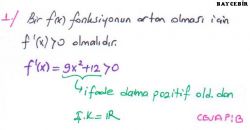 BAYCEBİR
1/ Bir f(x) fonksiyonun artan olması için
f'(x)>0 olmalıdır.
f'(x) = 9x²+12>0
ifade daima pozitif old. dan
Ç.K = ℝ
CEVAP:B